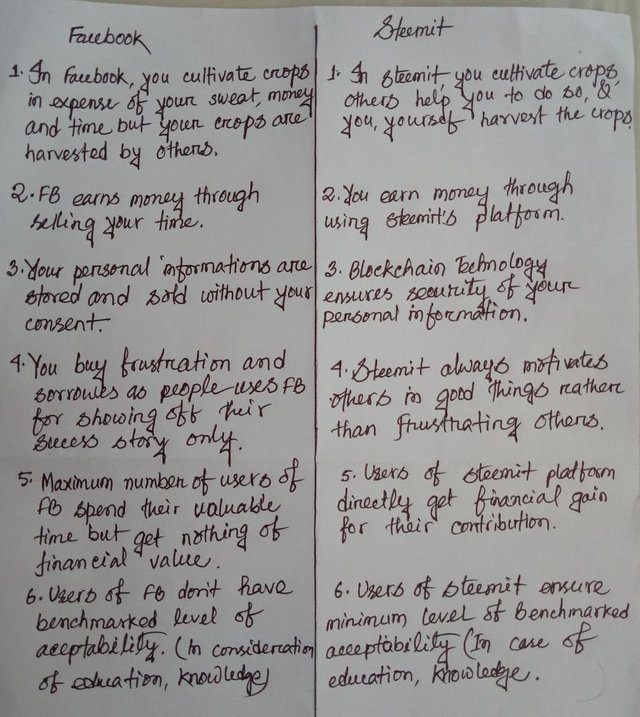 Facebook
1. In Facebook, you cultivate crops
in expense of your sweat, money
and time but your crops are
harvested by others.
2. FB earns money through
selling your time.
3. Your personal informations are
stored and sold without your
consent.
4. You buy frustration and
sorrows as people uses FB
for showing off their
success story only.
5. Maximum number of users of
FB spend their valuable
time but get nothing of
financial value.
6. Users of FB don't have
benchmarked level of
acceptability. (In consideration
of education, knowledge)
Steemit
1. In steemit, you cultivate crops,
others help you to do so, &
you, yourself harvest the crops.
2. You earn money through
using steemit's platform.
3. Blockchain Technology
ensures security of your
personal information.
4. Steemit always motivates
others in good things rather
than frustrating others.
5. Users of steemit platform
directly get financial gain
for their contribution.
6. Users of steemit ensure
minimum level of Benchmarked
acceptability (In case of
education, knowledge.